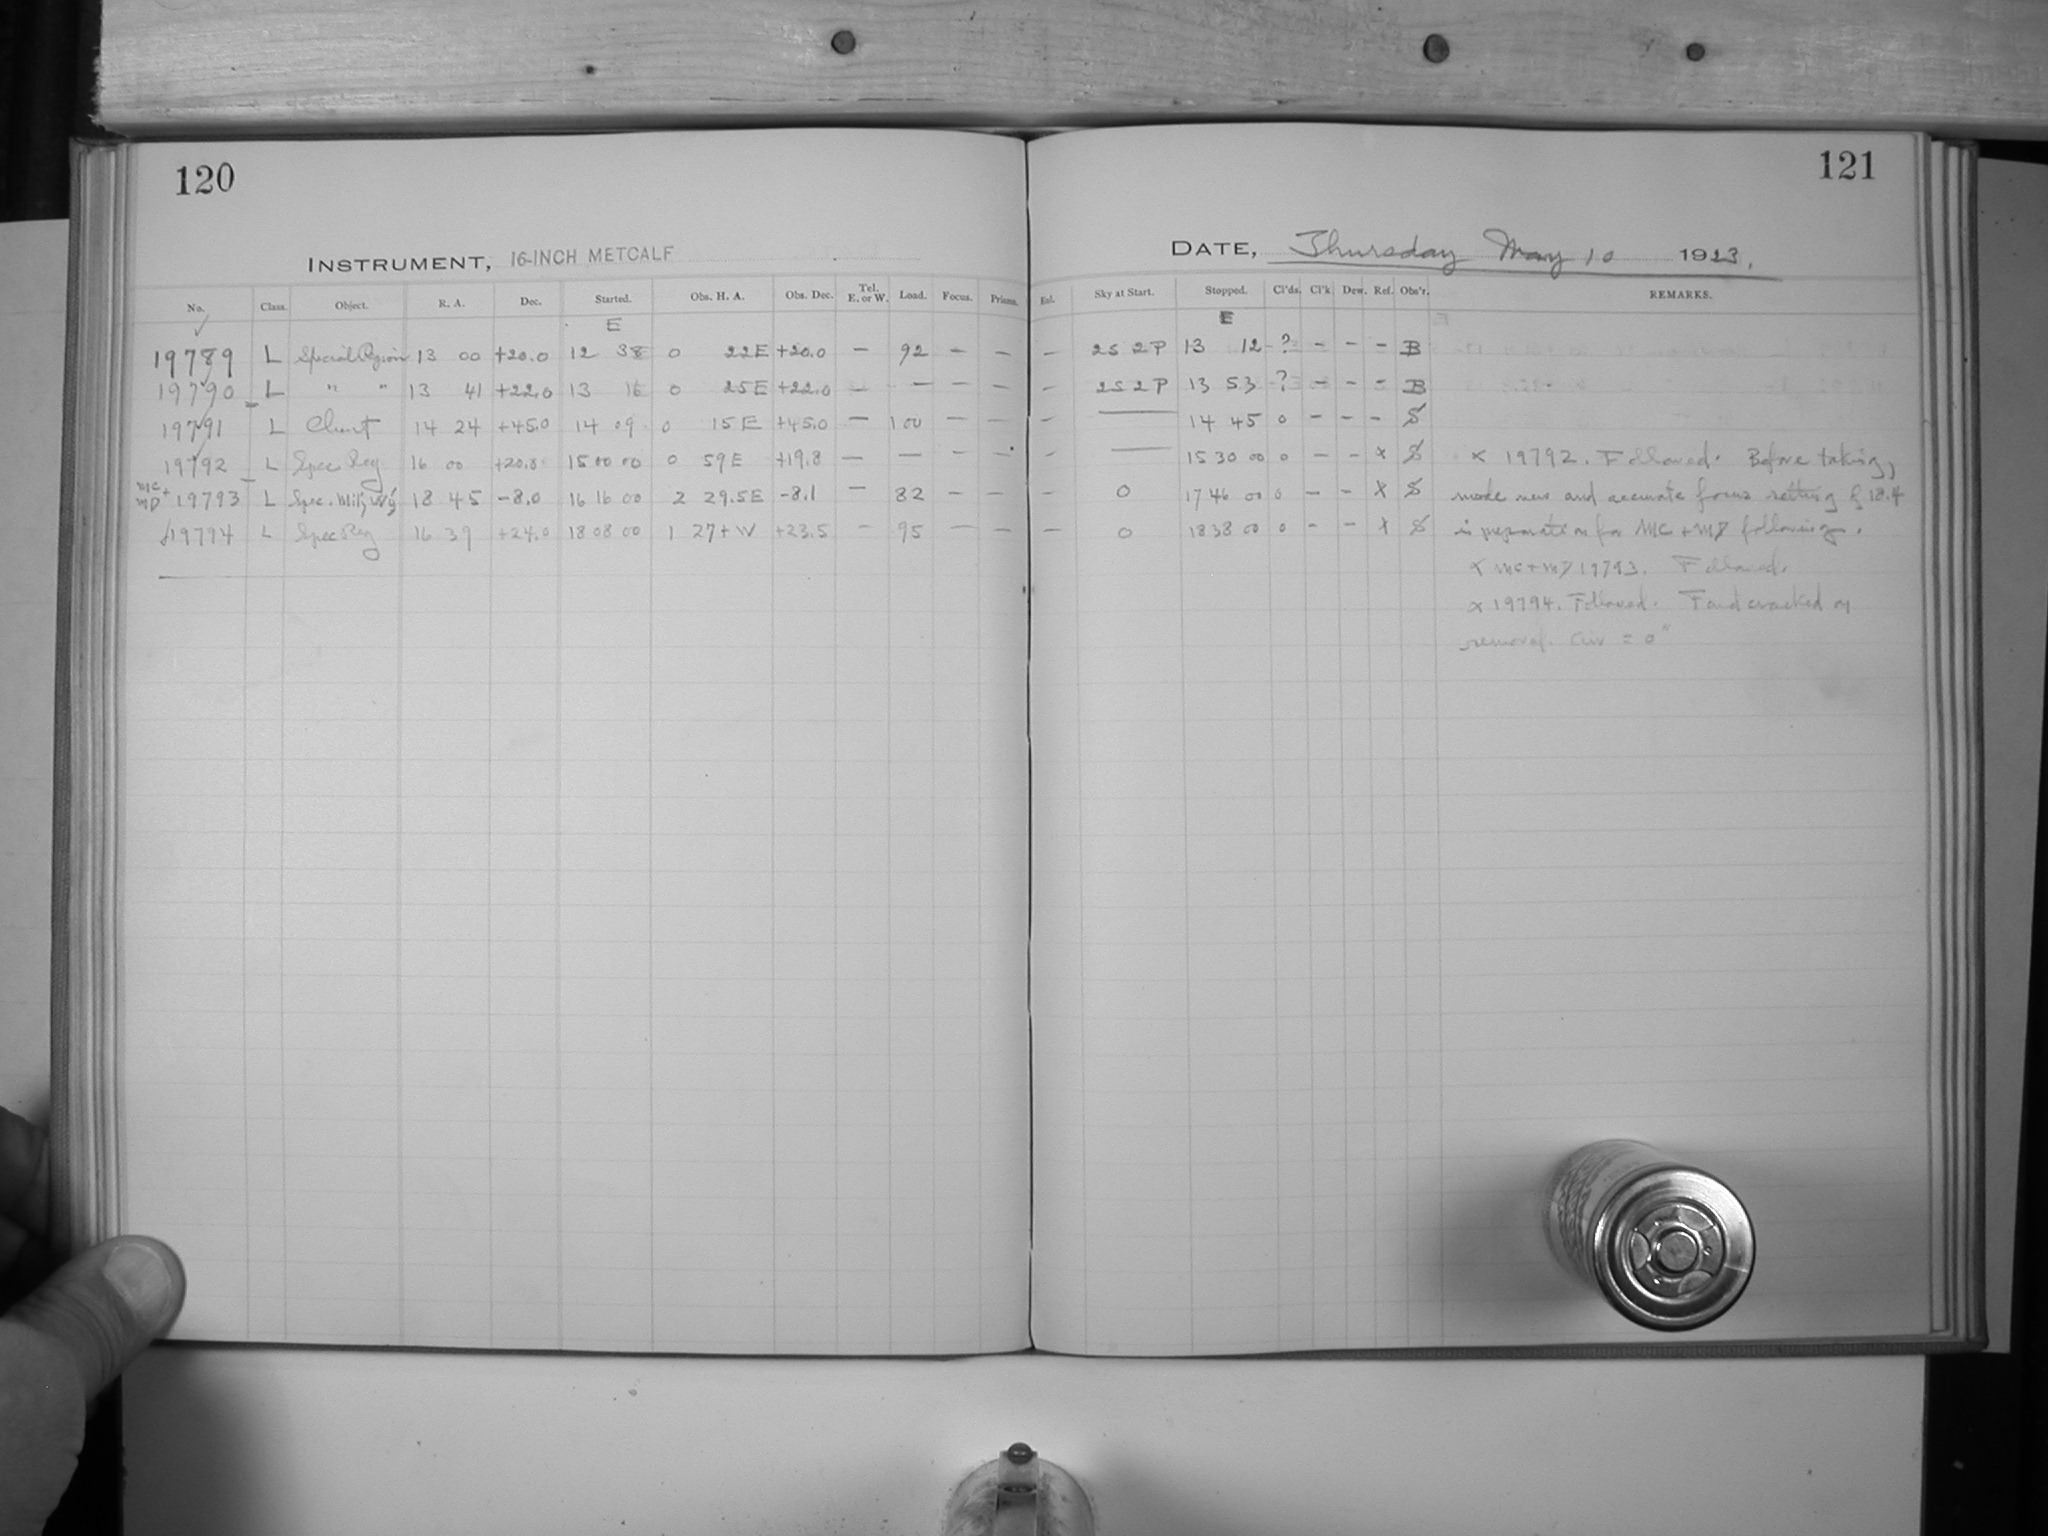 120
INSTRUMENT, 16-INCH METCALF
No. Class. Object. R. A. Dec. Started. Obs. H. A. Obs. Dec. Tel. E. or W. Load. Focus. Prisms.
E
19789 L Special Region 13 00 +20.0 12 38 0 22E +20.0 — 92 — —
19790 L " " 13 41 +22.0 13 16 0 25E +22.0 — — — —
19791 L Chart 14 24 +45.0 14 09 0 15E +45.0 — 100 — —
19792 L Spec Reg 16 00 +20.0 15 00 00 0 59E +19.8 — — — —
MC + MD 19793 L Spec. Milky Wy 18 45 -8.0 16 16 00 2 29.5E -8.1 — 82 — —
19794 L Spec Reg 16 39 +24.0 18 08 00 1 27+W +23.5 — 95 — —
121
DATE, Thursday May 10 1923.
Exl. Sky at Start. Stopped. Cl'ds. Cl'k Dew. Ref. Obs'r. REMARKS.
E
— 2S 2P 13 12 ? — — — B
— 2S 2P 13 53 ? — — — B
— — 14 45 0 — — — S
— — 15 30 00 0 — — x S x 19792. Followed. Before taking,
— 0 17 46 00 0 — — x S made new and accurate focus setting of 18.4
— 0 18 38 00 0 — — x S in preparation for MC + MD following.
x MC + MD 19793. Followed.
x 19794. Followed. Found cracked on
removal. = 0"